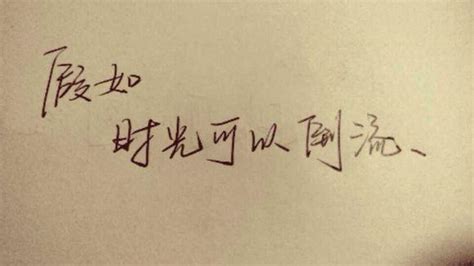 假如
时光可以倒流、